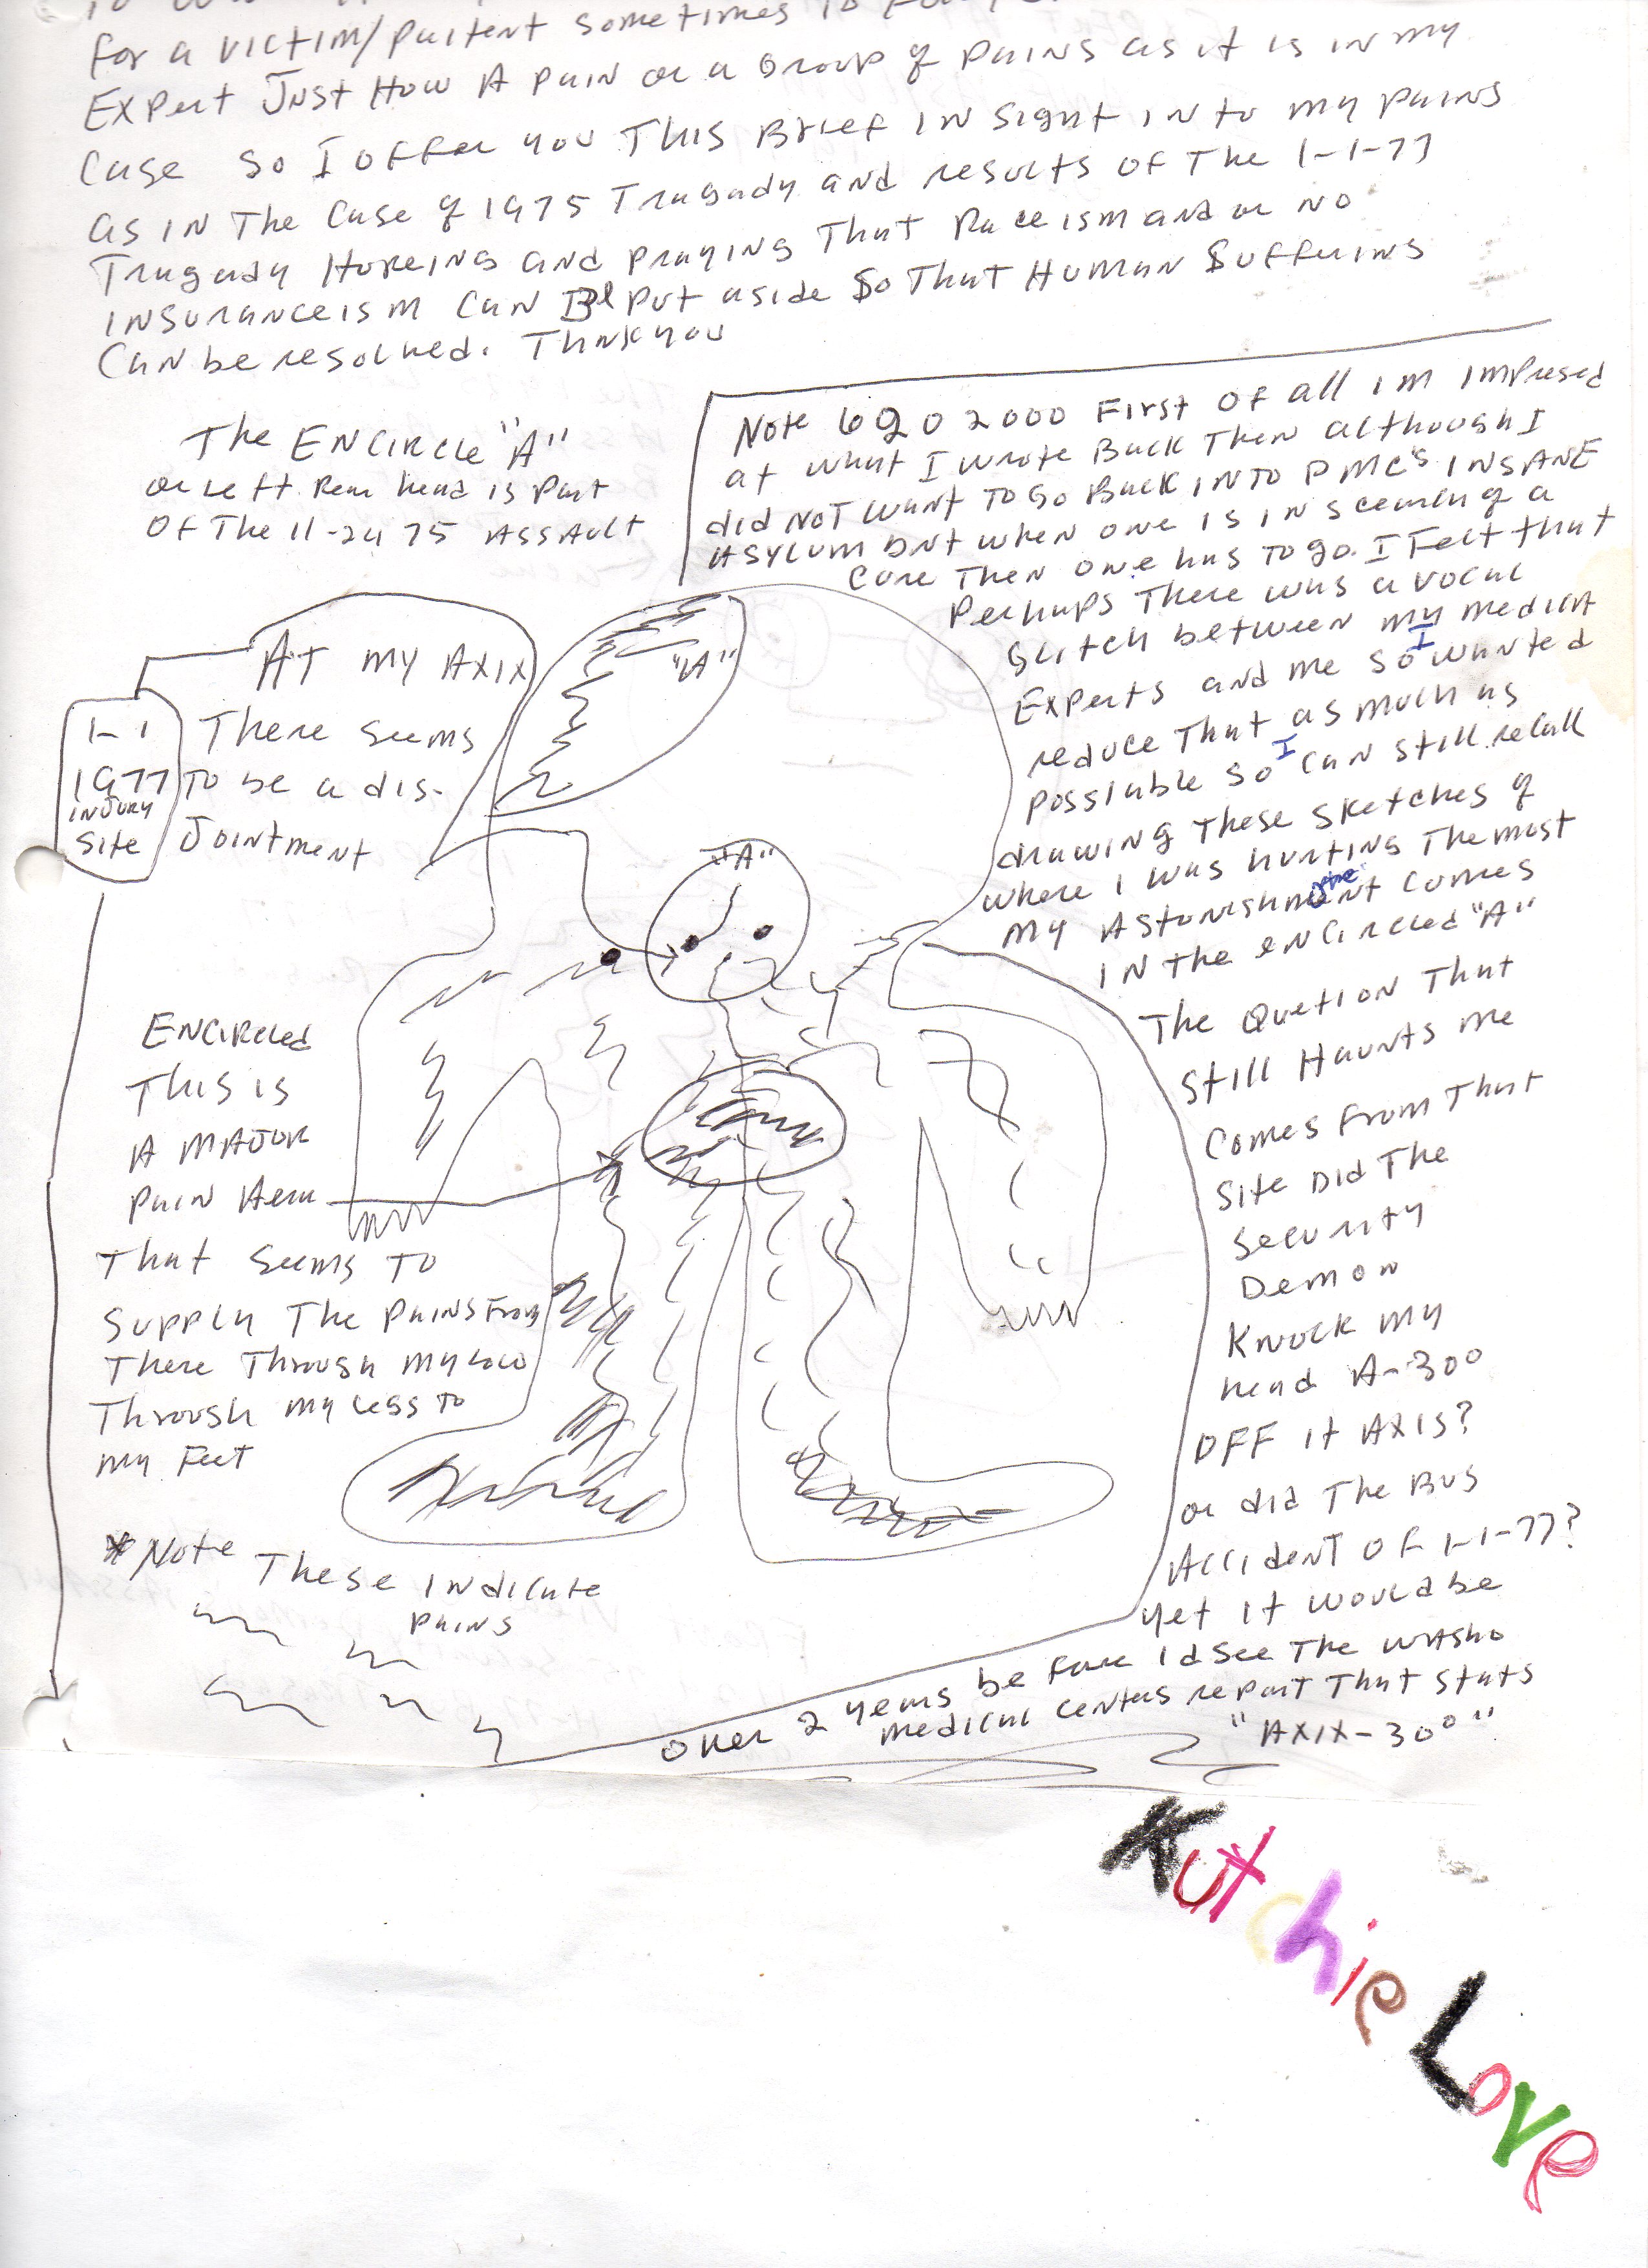 for a victim/paitent sometimes to
Expert Just How A pain or a Group of pains as it is in my
Case so I offer you This Brief in sight in to my pains
as in The Case of 1975 Tragady and results of The 1-1-77
Tragady Hopeing and praying That Raceism and or no
insuranceism can Be put aside So That Human Suffering
Can be resolved. Thnk you
The ENCIRCLE "A"
or left Rear head is part
Of The 11-24 75 ASSAULT
Note 6 20 2000 First of all im impresed
at what I wrote Back Then although I
did not want To Go Back into PMC's INSANE
ASYLUM but when one is in search of a
Cure Then one has to go. I Felt that
Perhaps There was a vocal
Glitch between my medical
Experts and me so I wanted
reduce That as much as
possiable so I can still recall
drawing These sketches of
where I was hurting The most
my Astonishment comes
in the encircled "A"
The Quetion That
Still Haunts me
Comes From That
Site Did The
Security
Demon
Knock my
head A-30°
OFF it AXIS?
or did The Bus
Accident of 1-1-77?
yet it would be
over 2 years be fore I d see The Washo
medical centers report That stats
"AXIX-30°"
At my AXIX
There seems
To be a dis-
Jointment
1-1
1977
INJURY
Site
"A"
"A"
ENCIRCLED
This is
A MAJOR
Pain Aera
That seems To
Supply The pains From
There Through my
Through my Legs to
my Feet
*Note These indicate
pains
Kutchie Love